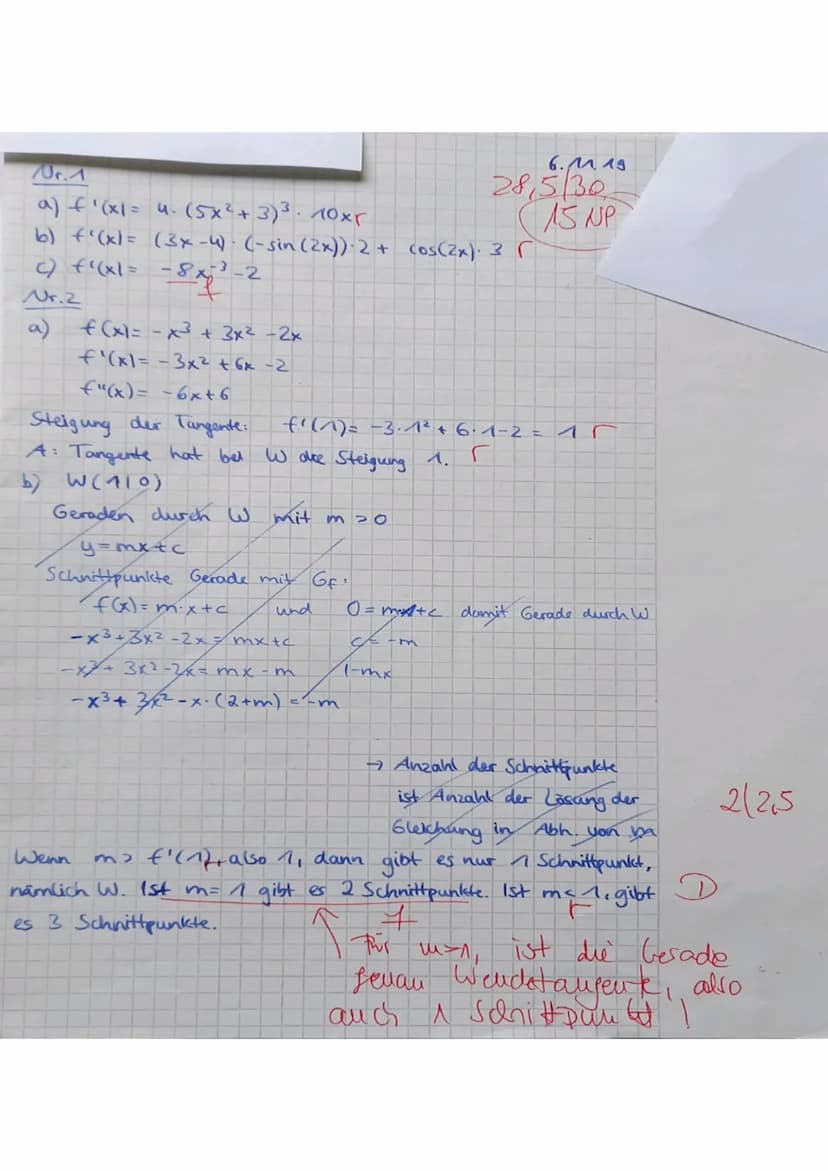 6.11.19
28,5/30
15 NP
Nr.1
a) f'(x)= 4·(5x²+3)³·10x r
b) f'(x)= (3x-4)·(-sin(2x))·2 + cos(2x)·3 r
c) f'(x)= -8x⁻³-2
f
Nr.2
a) f(x)= -x³ + 3x² -2x
f'(x)= -3x² +6x -2
f''(x)= -6x+6
Steigung der Tangente: f'(1)= -3·1² + 6·1-2 = 1 r
A: Tangente hat bei W die Steigung 1. r
b) W(1|0)
Geraden durch W mit m>0
y=mx+c
Schnittpunkte Gerade mit Gf:
f(x)=m·x+c und 0=m·1+c damit Gerade durch W
-x³+3x²-2x= mx+c c=-m
-x³+3x²-2x= mx-m |-mx
-x³+3x²-x·(2+m)=-m
→ Anzahl der Schnittpunkte
ist Anzahl der Lösung der
Gleichung in Abh. von m
2/2,5
Wenn m> f'(1), also 1, dann gibt es nur 1 Schnittpunkt,
nämlich W. Ist m=1 gibt es 2 Schnittpunkte. Ist m<1, gibt
es 3 Schnittpunkte.
r
f
Für m=1, ist die Gerade
genau Wendetangente, also
auch 1 Schnittpunkt!